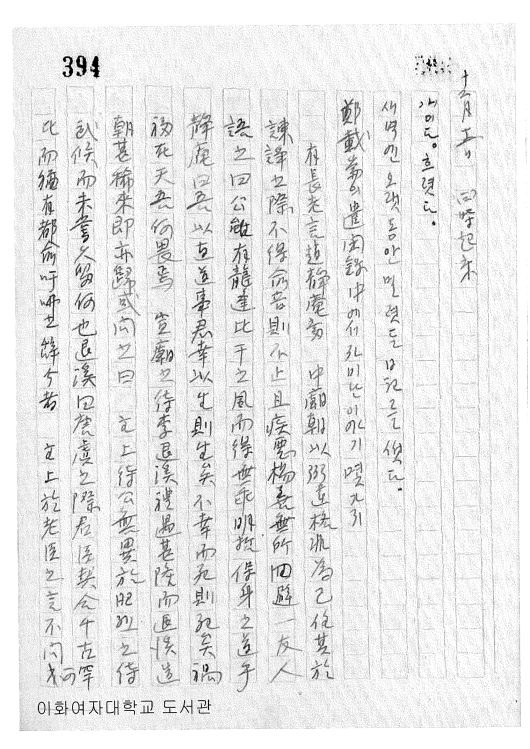 394
十二月 五日 四時起床
개이다. 흐렷다.
새벽엔 오랫동안 밀렷든 日記를 썻다.
鄭載崙公 遣閑錄中에서 자미난 이야기 몇가지
有長老言趙靜庵當 中廟朝以弼違格非為己任其於
諫諍之際不得兪音則不止且疾惡揚善無所回避 一友人
語之曰公雖有龍逢比干之風而得無乖明哲保身之道乎
靜庵曰吾以直道事君幸以生則生矣不幸而死則死矣禍
福死天吾何畏焉 宣廟之待李退溪禮遇甚隆而退溪造
朝甚稀來即亦歸或問之曰 主上待公無異於昭烈之待
武侯而未嘗久留何也退溪曰唐虞之際君臣契合千古罕
比而猶有都兪吁咈也餘今者 主上於老臣之言不問可
이화여자대학교 도서관